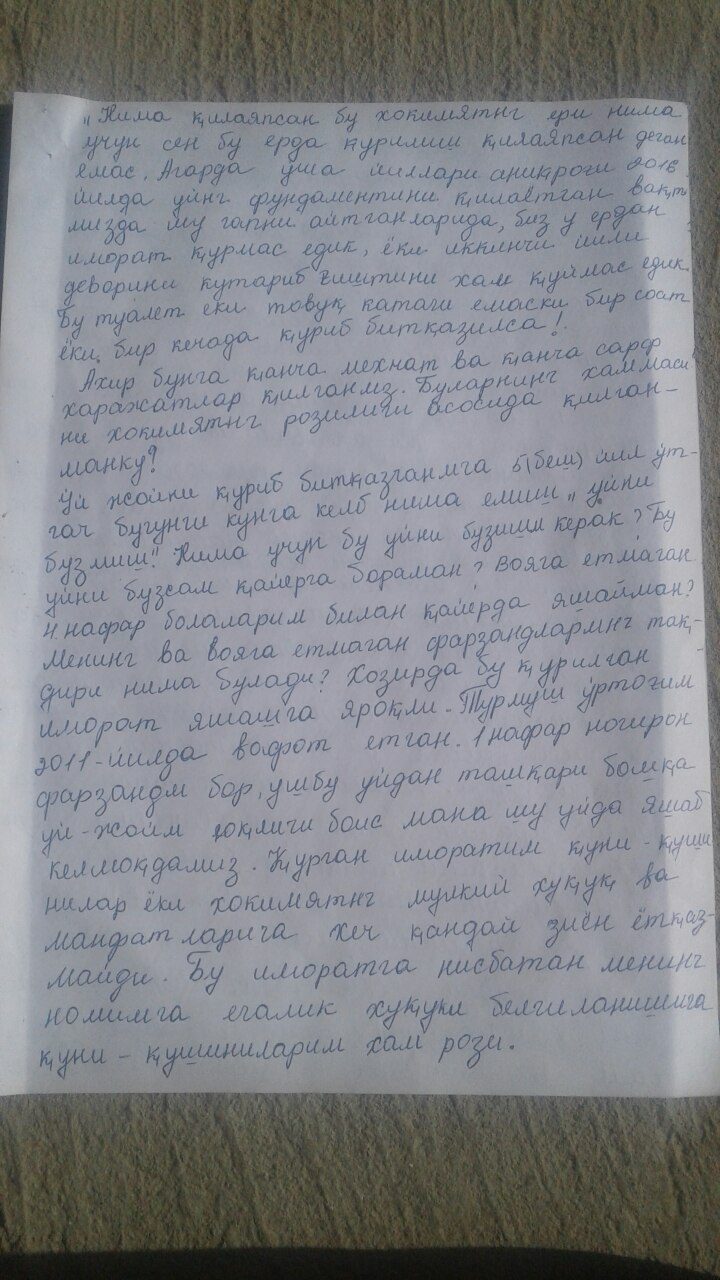 „Нима қилаяпсан бу хокимятнг ери нима
учун сен бу ерда қурилиш қилаяпсан деган
емас. Агарда ўша йиллари аниқроғи 2016
йилда уйнг фундаментини қилаётган вақт
мизда шу гапни айтганларида, биз у ердан
иморат қурмас едик, ёки иккинчи йили
деворини кутариб ғиштини хам қуймас едик.
Бу туалет ёки товуқ катаги емаски бир соат
ёки бир кечада қуриб битқазилса!
Ахир бунга қанча мехнат ва қанча сарф
харажатлар қилганмз. Буларнинг хаммаси
ни хокимятнг розилиги асосида қилган-
манку?
Уй жойни қуриб битқазганмга 5 (беш) йил ўт-
гач бугунги кунга келб нима емиш „уйни
бузмиш". Нима учун бу уйни бузишм керак? Бу
уйни бузсам қаерга бораман? Вояга етмаган
4 нафар болаларим билан қайерда яшайман?
Менинг ва вояга етмаган фарзандлармнг тақ-
дири нима булади? Хозирда бу қурилган
иморат яшашга яроқли. Турмуш ўртоғим
2011-йилда вафот етган. 1 нафар ногирон
фарзандм бор, ушбу уйдан ташқари бошқа
уй-жойм йоқлиги боис мана шу уйда яшаб
келмоқдамиз. Қурган иморатим қуни-қуши
нилар ёки хокимятнг мулкий хуқуқ ва
манфатларига хеч қандай зиён ётқаз-
майди. Бу иморатга нисбатан менинг
номимга егалик хуқуқи белгиланишига
қуни-қушниларим хам рози.